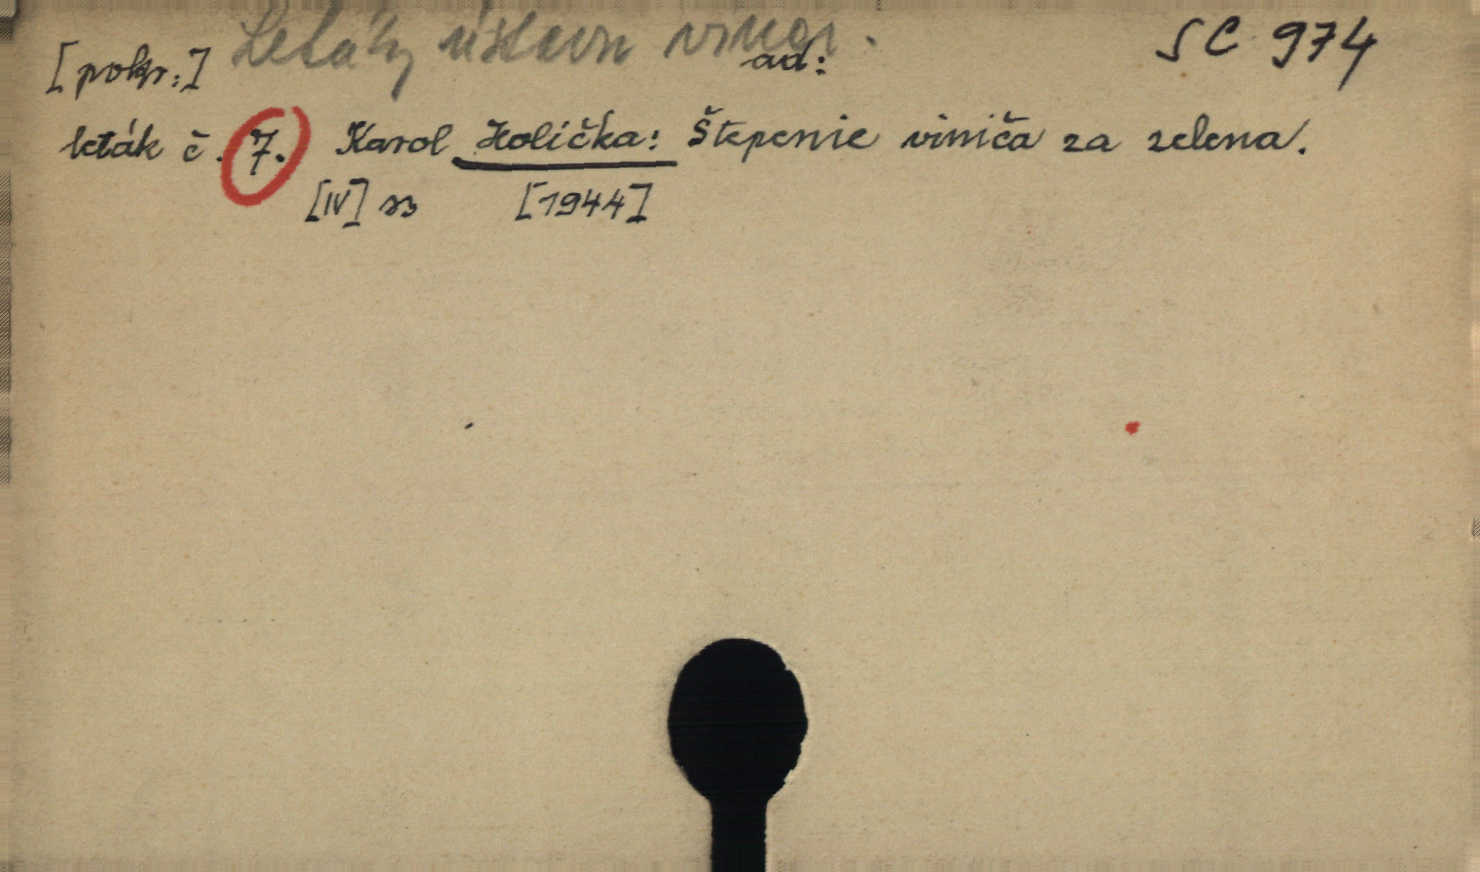 [pokr.:] Letáky ústavu vinoh. ad: SC 974
leták č. 7. Karol Holička: Štepenie viniča za zelena.
[IV] s [1944]